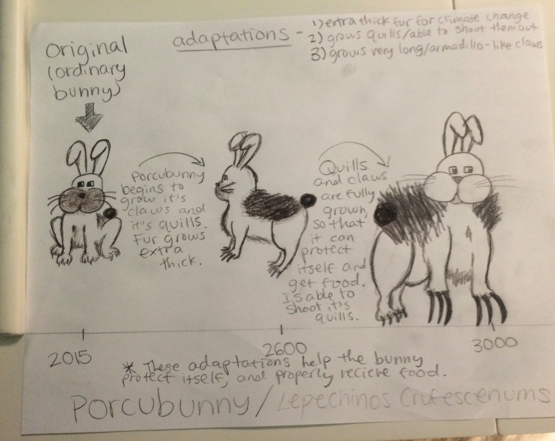 adaptations - 1) extra thick fur for climate change
2) grows quills/able to shoot them out
3) grows very long/armadillo-like claws
Original
(ordinary
bunny)
Porcubunny
begins to
grow it's
claws and
it's quills.
Fur grows
extra
thick.
Quills
and claws
are fully
grown
so that
it can
protect
itself and
get food.
Is able to
shoot it's
quills.
2015
2600
3000
* These adaptations help the bunny
protect itself, and properly recieve food.
Porcubunny / Lepechinos Crufescenums